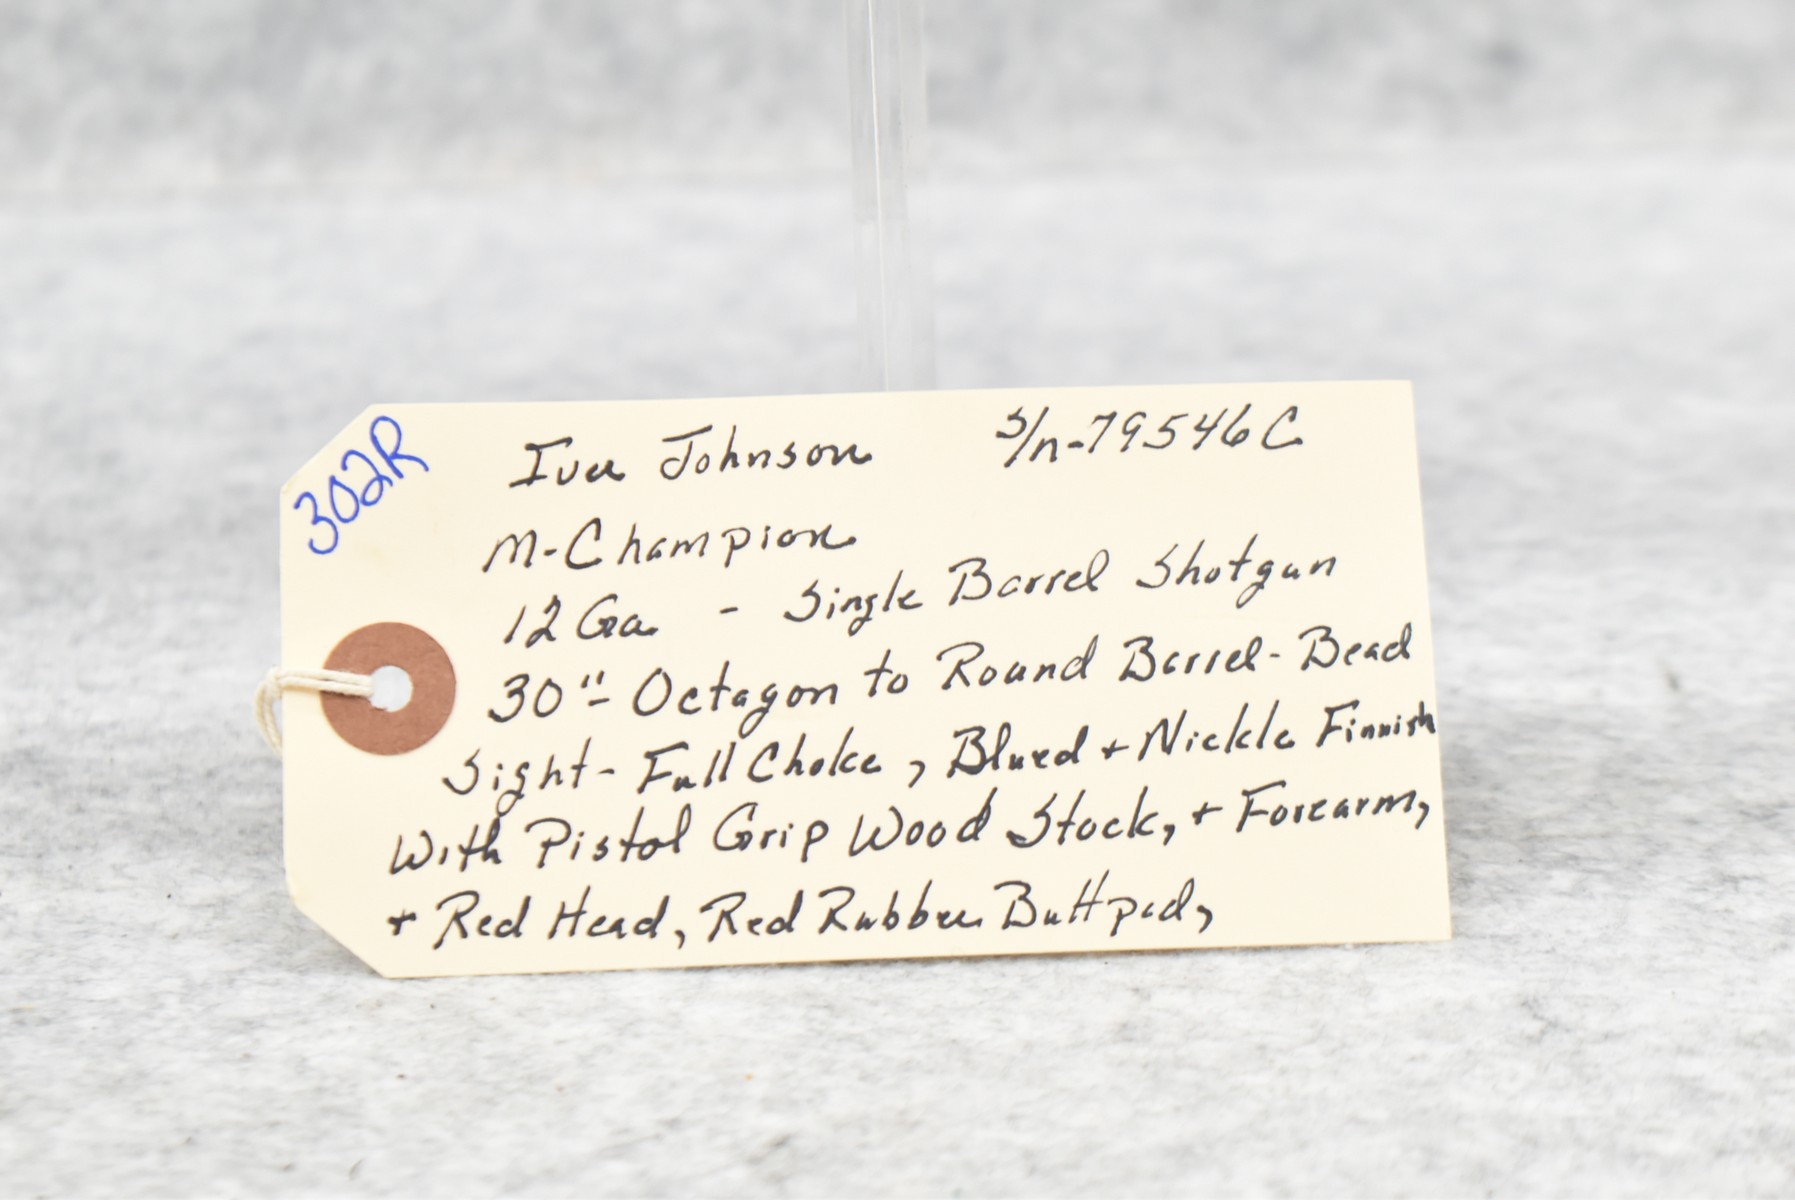 302R
Iver Johnson S/n-79546C
M-Champion
12 Ga. - Single Barrel Shotgun
30"- Octagon to Round Barrel-Bead
Sight-Full Choke, Blued + Nickle Finnish
With Pistol Grip Wood Stock, + Forearm,
+ Red Head, Red Rubber Buttpad,